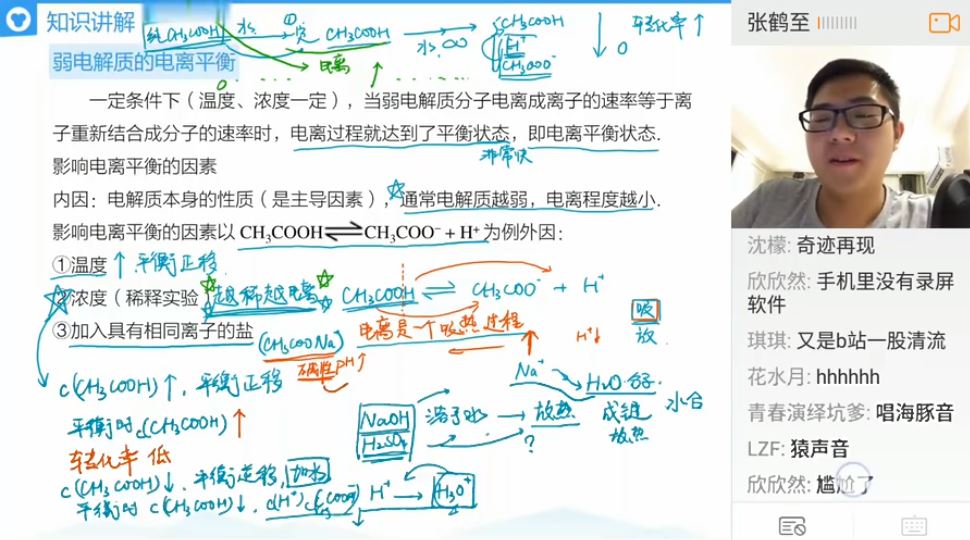 知识讲解
弱电解质的电离平衡
纯CH₃COOH
水
①
CH₃COOH
水 ∞
CH₃COOH
H⁺
CH₃COO⁻
0
转化率↑
电离
↑
0
一定条件下（温度、浓度一定），当弱电解质分子电离成离子的速率等于离
子重新结合成分子的速率时，电离过程就达到了平衡状态，即电离平衡状态.
非常快
影响电离平衡的因素
内因：电解质本身的性质（是主导因素），通常电解质越弱，电离程度越小.
影响电离平衡的因素以 CH₃COOH⇌CH₃COO⁻ + H⁺ 为例外因：
①温度↑ 平衡正移.
②浓度（稀释实验）越稀越电离 CH₃COOH ⇌ CH₃COO⁻ + H⁺
③加入具有相同离子的盐 (CH₃COONa) 电离是一个吸热过程
吸
放
H⁺↓
碱性 pH↑
c(CH₃COOH)↑，平衡正移
平衡时 c(CH₃COOH)↑
转化率 低
c(CH₃COOH)↓. 平衡逆移，加水
平衡时 c(CH₃COOH)↓. c(H⁺)
H⁺ → H₃O⁺
NaOH
H₂SO₄
溶于水 → 放热
?
Na⁺
H₂O分子.
成键
放热
水合
张鹤至
沈檬: 奇迹再现
欣欣然: 手机里没有录屏
软件
琪琪: 又是b站一股清流
花水月: hhhhhh
青春演绎坑爹: 唱海豚音
LZF: 猿声音
欣欣然: 尴尬了